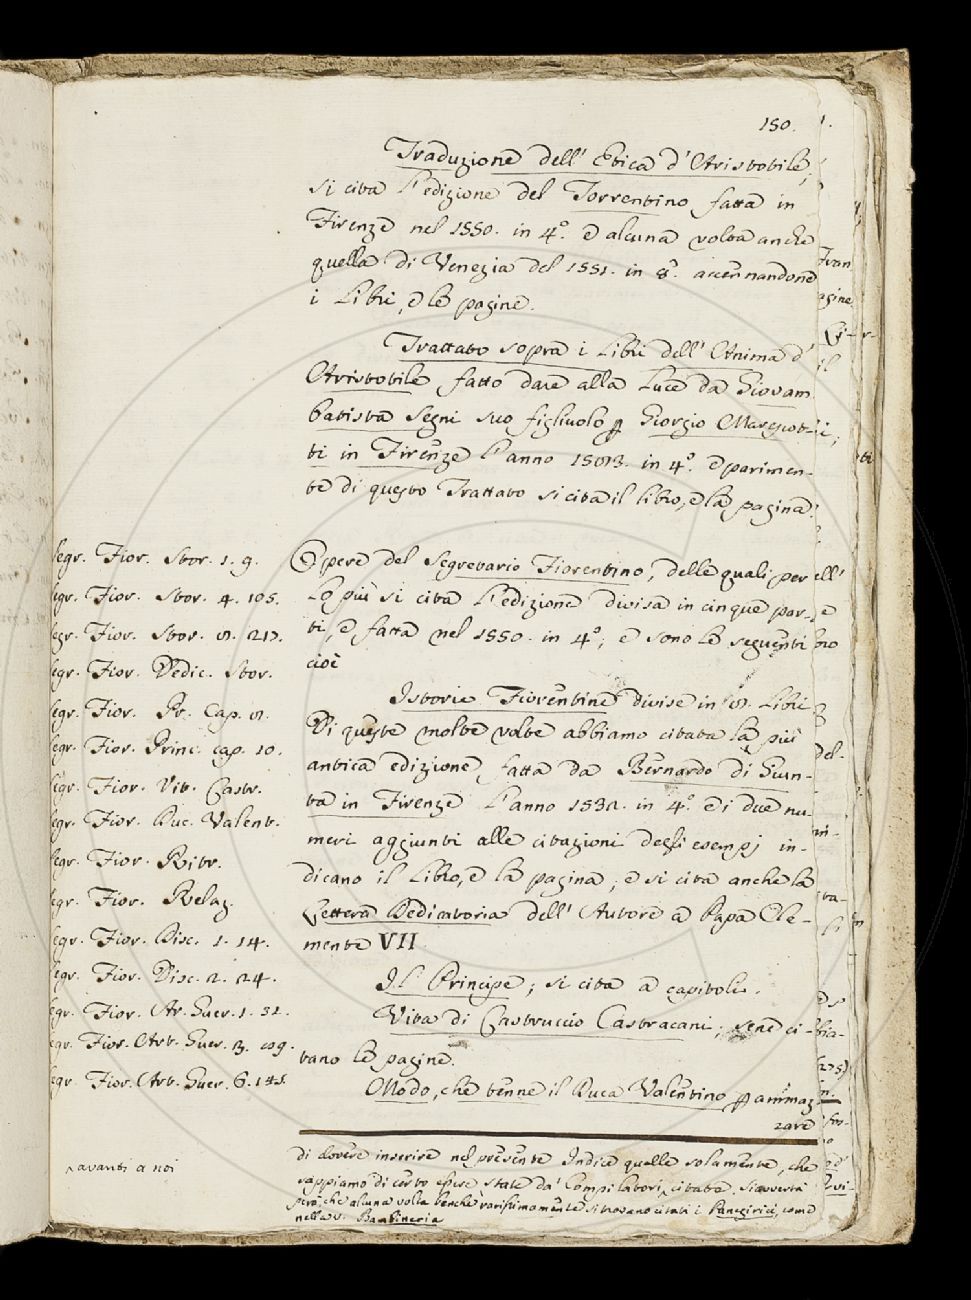 150.
Traduzione dell' Etica d' Aristotile,
si cita l'edizione del Torrentino fatta in
Firenze nel 1550. in 4.º e alcuna volta anche
quella di Venezia del 1551. in 8.º accennandone
i Libri, e le pagine.
Trattato sopra i Libri dell' Anima d'
Aristotile fatto dare alla Luce da Giovam
batista Segni suo figliuolo p Giorgio Marescot-
ti in Firenze l'anno 1583. in 4.º e parimen-
te di questo Trattato si cita il libro, e la pagina.
Segr. Fior. Stor. 1. 9.
Segr. Fior. Stor. 4. 105.
Segr. Fior. Stor. 8. 217.
Segr. Fior. Dedic. Stor.
Segr. Fior. Pr. Cap. 8.
Segr. Fior. Princ. cap. 10.
Segr. Fior. Vit. Castr.
Segr. Fior. Duc. Valent.
Segr. Fior. Ritr.
Segr. Fior. Relaz.
Segr. Fior. Disc. 1. 14.
Segr. Fior. Disc. 2. 24.
Segr. Fior. Ar. Guer. 1. 31.
Segr. Fior. Art. Guer. 3. 89.
Segr. Fior. Art. Guer. 6. 141.
Opere del Segretario Fiorentino, delle quali per
lo più si cita l'edizione divisa in cinque par-
ti, e fatta nel 1550. in 4.º; e sono le seguenti
cioè
Istorie Fiorentine divise in 8. Libri
Di queste molte volte abbiamo citata la più
antica edizione fatta da Bernardo di Giun-
ta in Firenze l'anno 1532. in 4.º e i due nu
meri aggiunti alle citazioni degli esempj in-
dicano il Libro, e la pagina; e si cita anche la
Lettera Dedicatoria dell' Autore a Papa Cle-
mente VII
Il Principe; si cita a capitoli.
Vita di Castruccio Castracani; sene ci-
tano le pagine.
Modo, che tenne il Duca Valentino p ammaz
zare
di dovere inserire nel presente Indice quelle solamente, che
sappiamo di certo essere state da' Compilatori citate. Si avverta
però, che alcuna volta benchè rarissimamente si trovano citati i Panegirici, come
nella v. Bambineria
avanti a noi